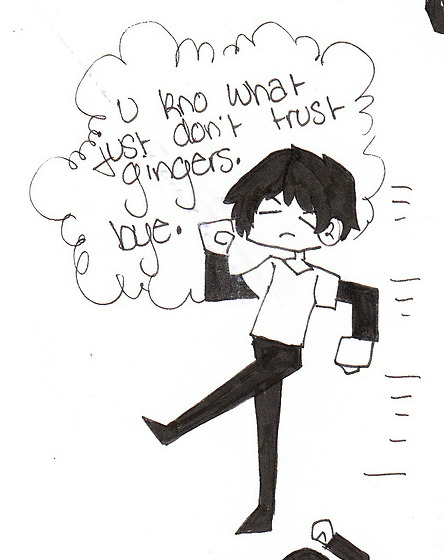 u kno what
just don't trust
gingers.
bye.